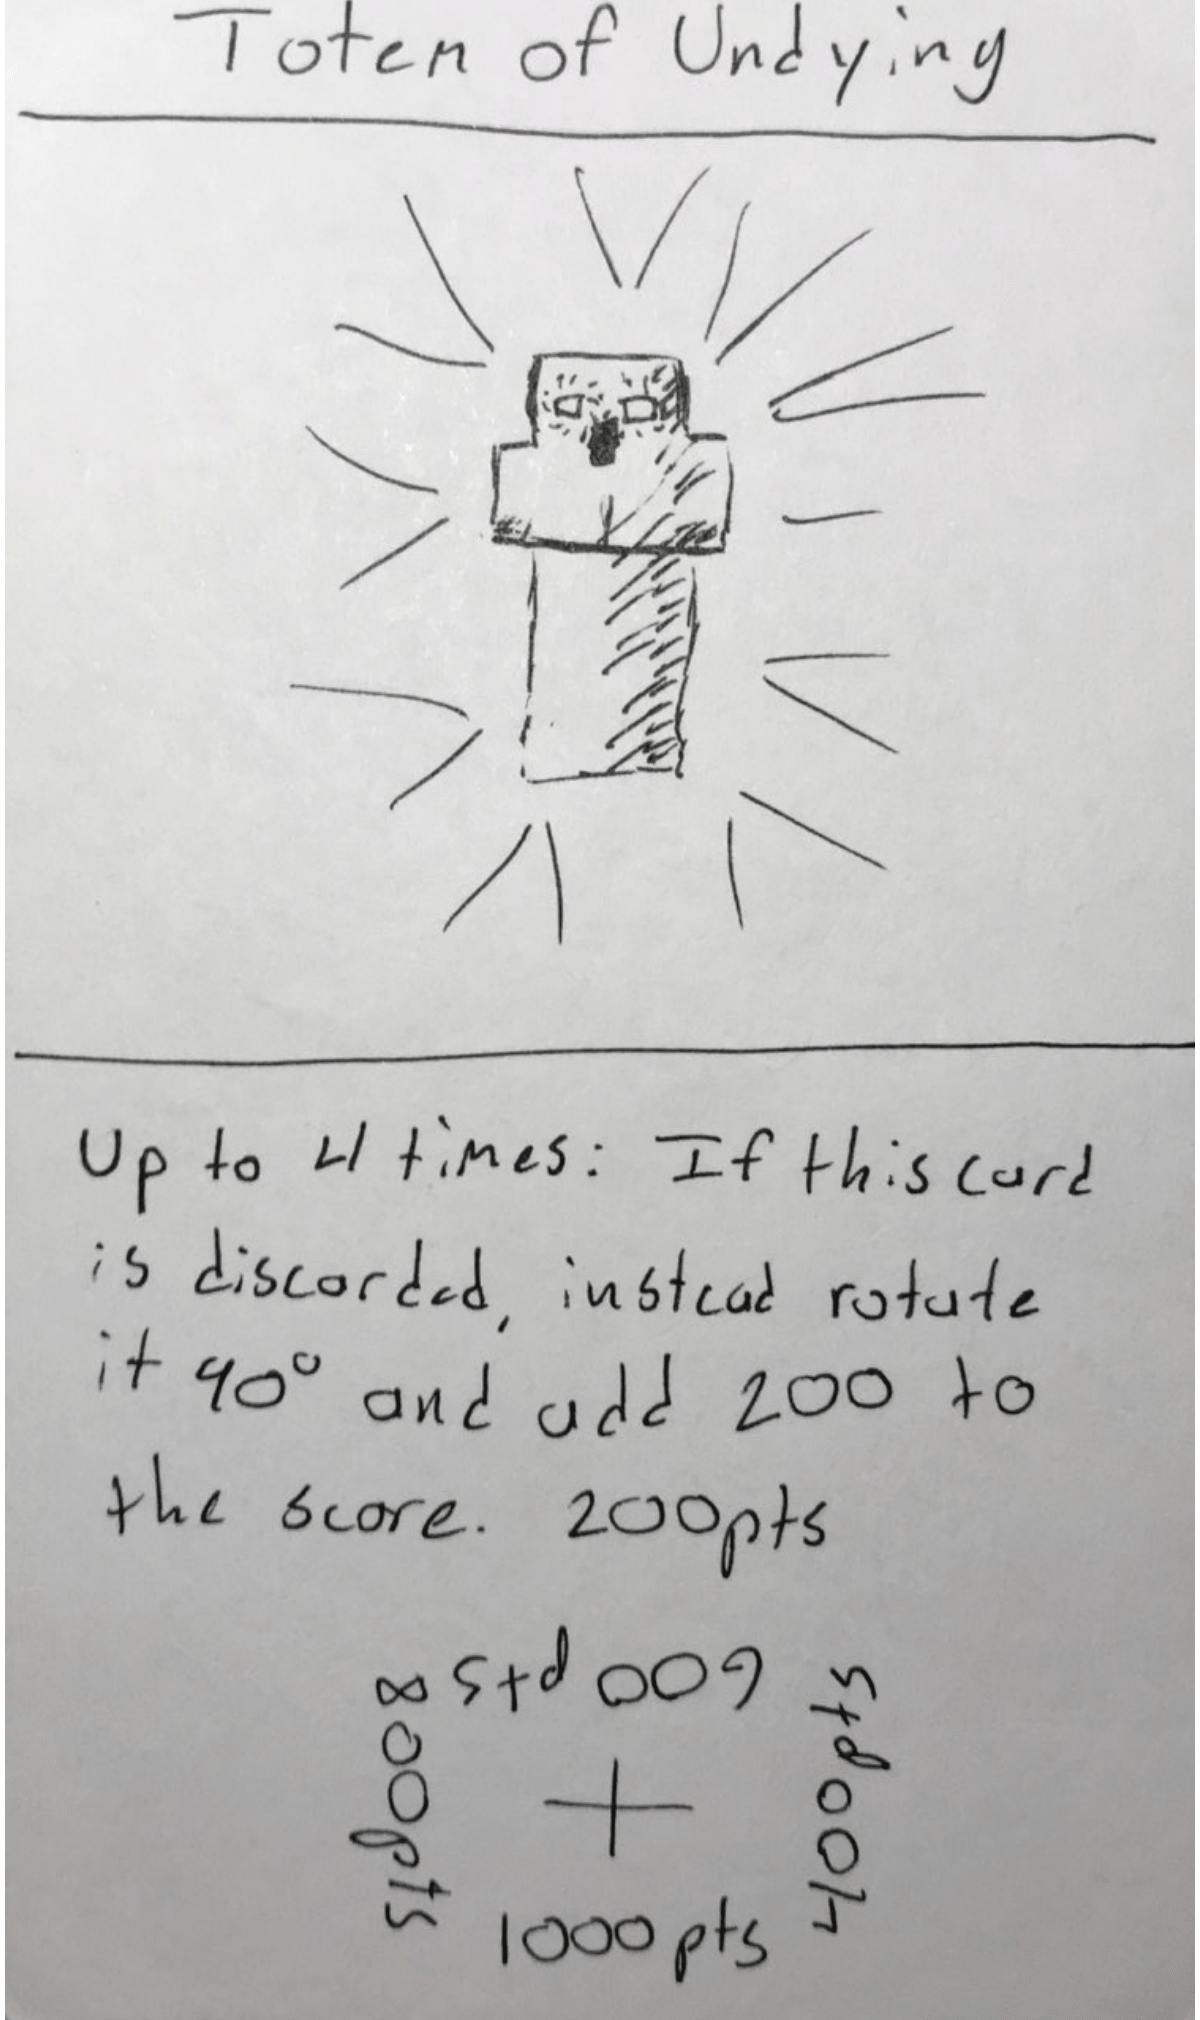 Totem of Undying
Up to 4 times: If this card
is discarded, instead rotate
it 90° and add 200 to
the score. 200pts
600pts
800pts
400pts
1000pts